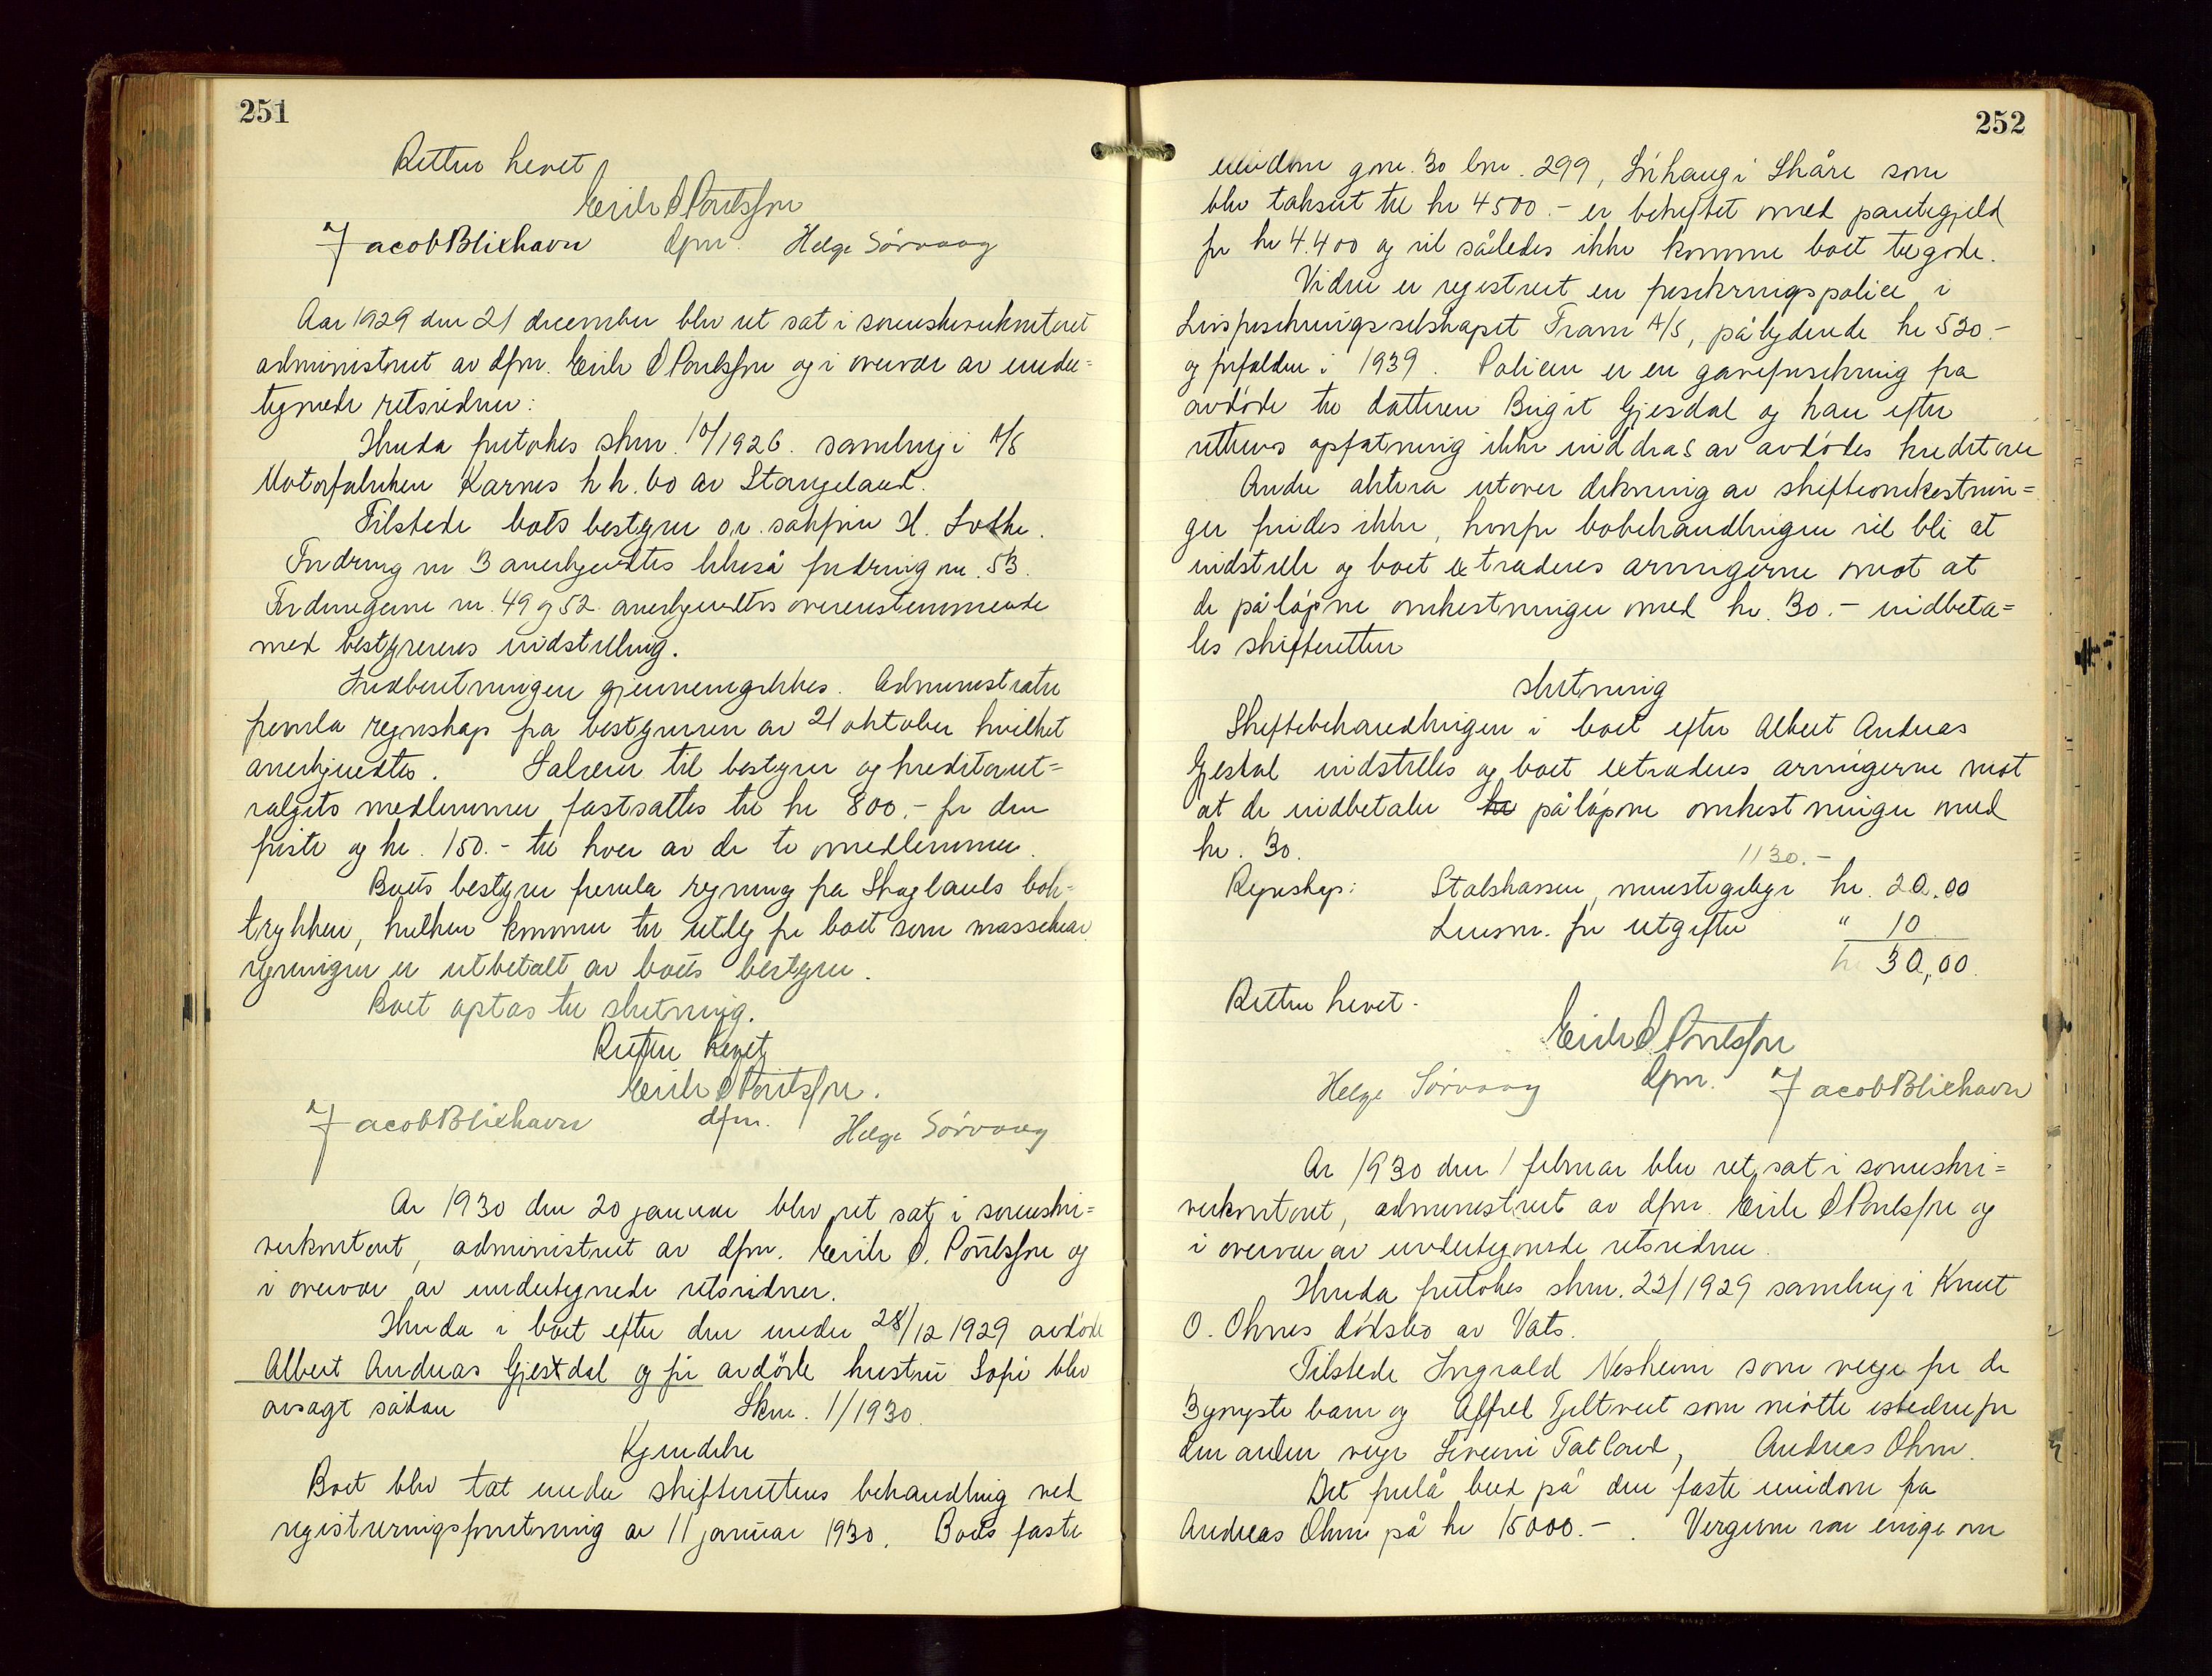 251
Retten hevet
Erik O Poulsson
Jacob Blixhavn dfm. Helge Sørvaag
Aar 1929 den 21 december blev ret sat i sorenskriverkontoret
administrert av dfm. Erik O Poulsson og i overvær av under=
tegnede retsvidner:
Hvorda foretokes skm. 10/1926. samling i A/S
Motorfabriken Karnes k k. bo av Stangeland.
Tilstede boets bestyrer o.r. sakfører H. Lothe.
Fordring nr 3 anerkjendtes likeså fordring nr. 53.
Fordringerne nr. 49 og 52 anerkjendtes overenstemmende
med bestyrerens indstilling.
Indberetningen gjennemgikkes. Administrator
fremla regnskap fra bestyreren av 21 oktober hvilket
anerkjendtes. Salærer til bestyrer og kreditorut=
valgets medlemmer fastsattes til kr 800.- for den
første og kr. 150.- til hver av de to medlemmer.
Boets bestyrer fremla regning fra Skoglands bok=
trykkeri, hvilken kommer til utlæg for boet som massekrav
regningen er utbetalt av boets bestyrer.
Boet optas til slutning.
Retten hevet
Erik O Poulsson.
Jacob Blixhavn dfm. Helge Sørvaag
År 1930 den 20 januar blev ret sat i sorenskri=
verkontoret, administrert av dfm. Erik O. Poulsson og
i overvær av undertegnede retsvidner.
Hvorda i boet efter den under 28/12 1929 avdøde
Albert Andreas Gjestdal og før avdøde hustru Sofie blev
avsagt sådan Skm. 1/1930.
Kjendelse
Boet blev tat under skifterettens behandling ved
registreringsforretning av 11 januar 1930. Boets faste
252
eiendom gnr. 30 bnr. 299, Solhaug i Skåre som
blev taksert til kr 4500.- er beheftet med pantegjeld
for kr 4.400 og vil således ikke komme boet tilgode.
Videre er registrert en forsikringspolice i
Livsforsikringsselskapet Fram A/S, pålydende kr 520.-
og forfalden i 1939. Policen er en gaveforsikring fra
avdøde til datteren Birgit Gjesdal og kan efter
rettens opfatning ikke inddras av avdødes kreditorer
Andre aktiva utover dekning av skifteomkostnin=
ger findes ikke, hvorfor bobehandlingen vil bli at
indstille og boet extraderes arvingerne mot at
de påløpne omkostninger med kr. 30.- indbeta=
les skifteretten
slutning
Skiftebehandlingen i boet efter Albert Andreas
Gjesdal indstilles og boet extraderes arvingerne mot
at de indbetaler kr påløpne omkostninger med
kr. 30.
1130.-
Regnskap: Statskassen, mindstegebyr kr. 20.00
Lensm. for utgifter " 10
kr 30,00.
Retten hevet.
Erik O Poulsson
Helge Sørvaag dfm. Jacob Blixhavn
År 1930 den 1 februar blev ret sat i sorenskri=
verkontoret, administrert av dfm. Erik O Poulsson og
i overvær av undertegnede retsvidner.
Hvorda foretokes skm. 22/1929 samling i Knut
O. Ohmes dødsbo av Vats.
Tilstede Ingvald Nesheim som verge for de
3 yngste barn og Alfred Tjeltveit som møtte istedenfor
den anden verge Severin Fatland, Andreas Ohm.
Det forelå bud på den faste eiendom fra
Andreas Ohm på kr 15000.-. Vergerne var enige om